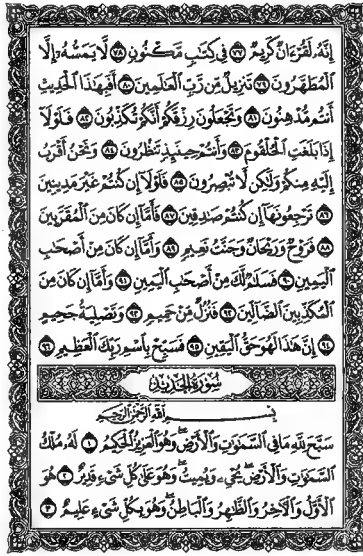 إِنَّهُۥ لَقُرۡءَانٞ كَرِيمٞ ٧٧ فِي كِتَٰبٖ مَّكۡنُونٖ ٧٨ لَّا يَمَسُّهُۥٓ إِلَّا
ٱلۡمُطَهَّرُونَ ٧٩ تَنزِيلٞ مِّن رَّبِّ ٱلۡعَٰلَمِينَ ٨٠ أَفَبِهَٰذَا ٱلۡحَدِيثِ
أَنتُم مُّدۡهِنُونَ ٨١ وَتَجۡعَلُونَ رِزۡقَكُمۡ أَنَّكُمۡ تُكَذِّبُونَ ٨٢ فَلَوۡلَآ
إِذَا بَلَغَتِ ٱلۡحُلۡقُومَ ٨٣ وَأَنتُمۡ حِينَئِذٖ تَنظُرُونَ ٨٤ وَنَحۡنُ أَقۡرَبُ
إِلَيۡهِ مِنكُمۡ وَلَٰكِن لَّا تُبۡصِرُونَ ٨٥ فَلَوۡلَآ إِن كُنتُمۡ غَيۡرَ مَدِينِينَ
٨٦ تَرۡجِعُونَهَآ إِن كُنتُمۡ صَٰدِقِينَ ٨٧ فَأَمَّآ إِن كَانَ مِنَ ٱلۡمُقَرَّبِينَ
٨٨ فَرَوۡحٞ وَرَيۡحَانٞ وَجَنَّتُ نَعِيمٖ ٨٩ وَأَمَّآ إِن كَانَ مِنۡ أَصۡحَٰبِ
ٱلۡيَمِينِ ٩٠ فَسَلَٰمٞ لَّكَ مِنۡ أَصۡحَٰبِ ٱلۡيَمِينِ ٩١ وَأَمَّآ إِن كَانَ مِنَ
ٱلۡمُكَذِّبِينَ ٱلضَّآلِّينَ ٩٢ فَنُزُلٞ مِّنۡ حَمِيمٖ ٩٣ وَتَصۡلِيَةُ جَحِيمٍ
٩٤ إِنَّ هَٰذَا لَهُوَ حَقُّ ٱلۡيَقِينِ ٩٥ فَسَبِّحۡ بِٱسۡمِ رَبِّكَ ٱلۡعَظِيمِ ٩٦
سُورَةُ الْحَدِيدِ
بِسۡمِ ٱللَّهِ ٱلرَّحۡمَٰنِ ٱلرَّحِيمِ
سَبَّحَ لِلَّهِ مَا فِي ٱلسَّمَٰوَٰتِ وَٱلۡأَرۡضِۖ وَهُوَ ٱلۡعَزِيزُ ٱلۡحَكِيمُ ١ لَهُۥ مُلۡكُ
ٱلسَّمَٰوَٰتِ وَٱلۡأَرۡضِۖ يُحۡيِۦ وَيُمِيتُۖ وَهُوَ عَلَىٰ كُلِّ شَيۡءٖ قَدِيرٌ ٢ هُوَ
ٱلۡأَوَّلُ وَٱلۡأٓخِرُ وَٱلظَّٰهِرُ وَٱلۡبَاطِنُۖ وَهُوَ بِكُلِّ شَيۡءٍ عَلِيمٌ ٣